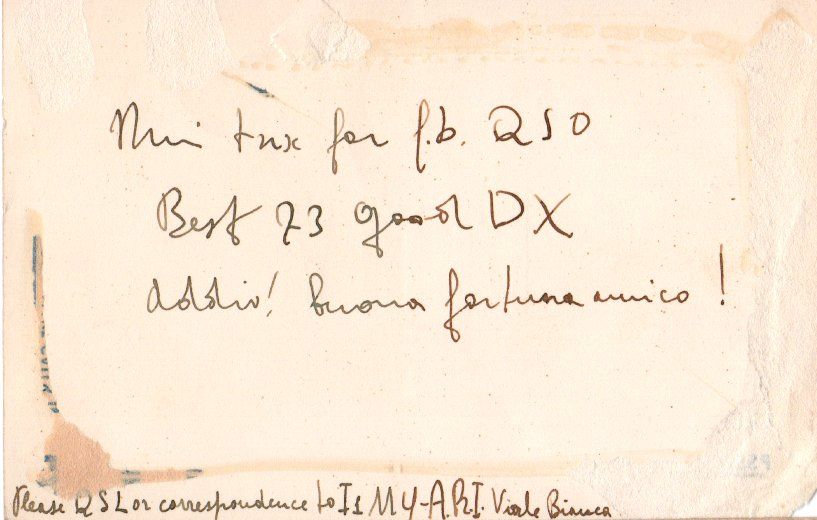 Mni tnx for f.b. QSO
Best 73 good DX
Addio! buona fortuna amico!
Please QSL or correspondence to I1 MY-A.R.I. Viale Bianca